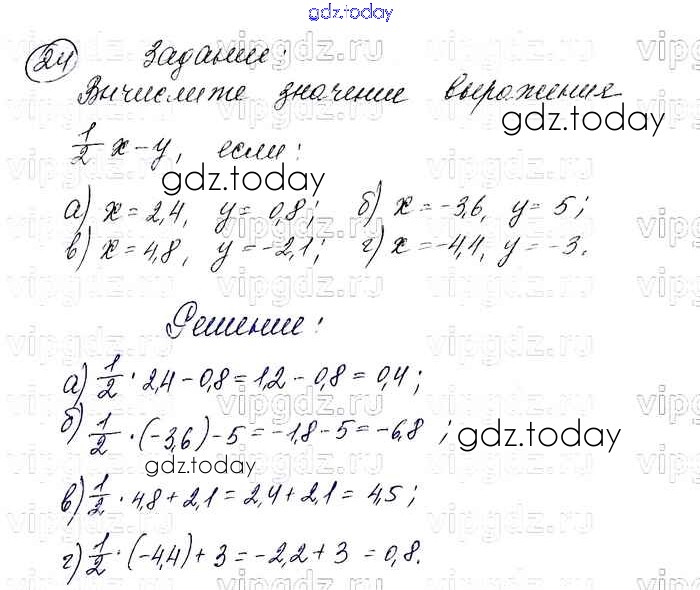 gdz.today
24 Задание:
Вычислите значение выражения
1/2 x - y, если:
gdz.today
gdz.today
а) x = 2,4, y = 0,8; б) x = -3,6, y = 5;
в) x = 4,8, y = -2,1; г) x = -4,4, y = -3.
Решение:
а) 1/2 · 2,4 - 0,8 = 1,2 - 0,8 = 0,4;
б) 1/2 · (-3,6) - 5 = -1,8 - 5 = -6,8;
gdz.today
gdz.today
в) 1/2 · 4,8 + 2,1 = 2,4 + 2,1 = 4,5;
г) 1/2 · (-4,4) + 3 = -2,2 + 3 = 0,8.
vipgdz.ru